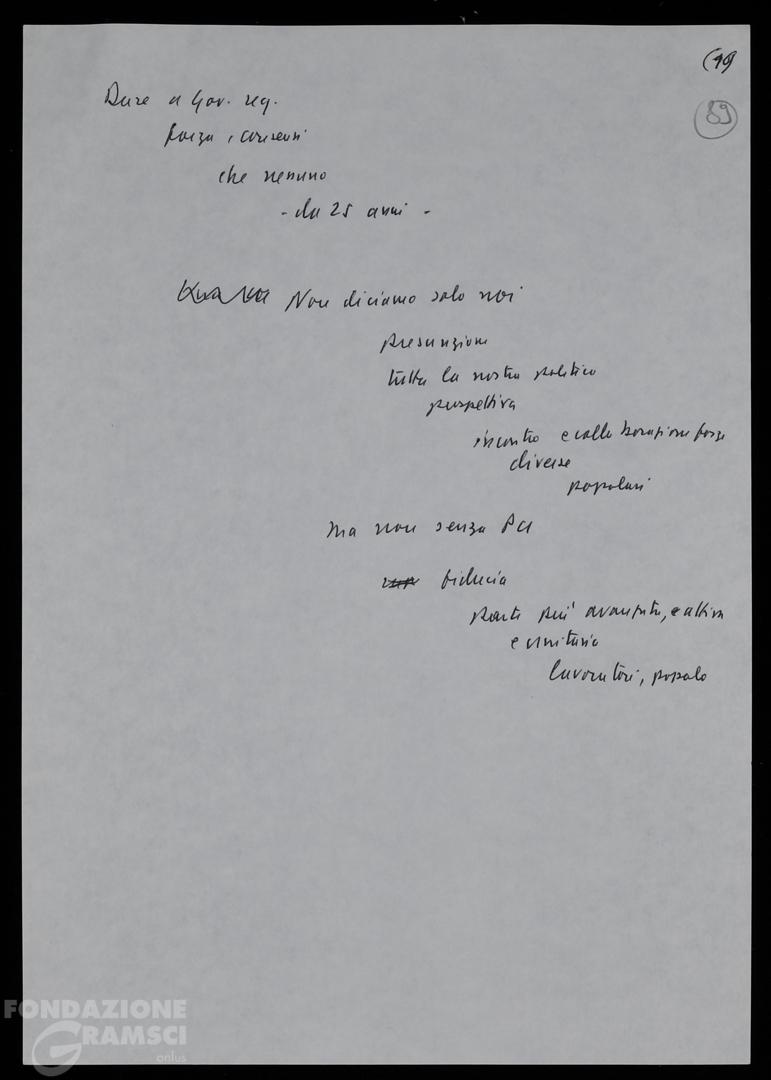 (40)
89
Dare a Gov. reg.
forza, consensi
che nessuno
- da 25 anni -
Non diciamo solo noi
presunzione
tutta la nostra politica
prospettiva
incontro e collaborazione forze
diverse
popolari
ma non senza PCI
fiducia
parte più avanzata, e attiva
e unitaria
lavoratori, popolo
FONDAZIONE
GRAMSCI
onlus